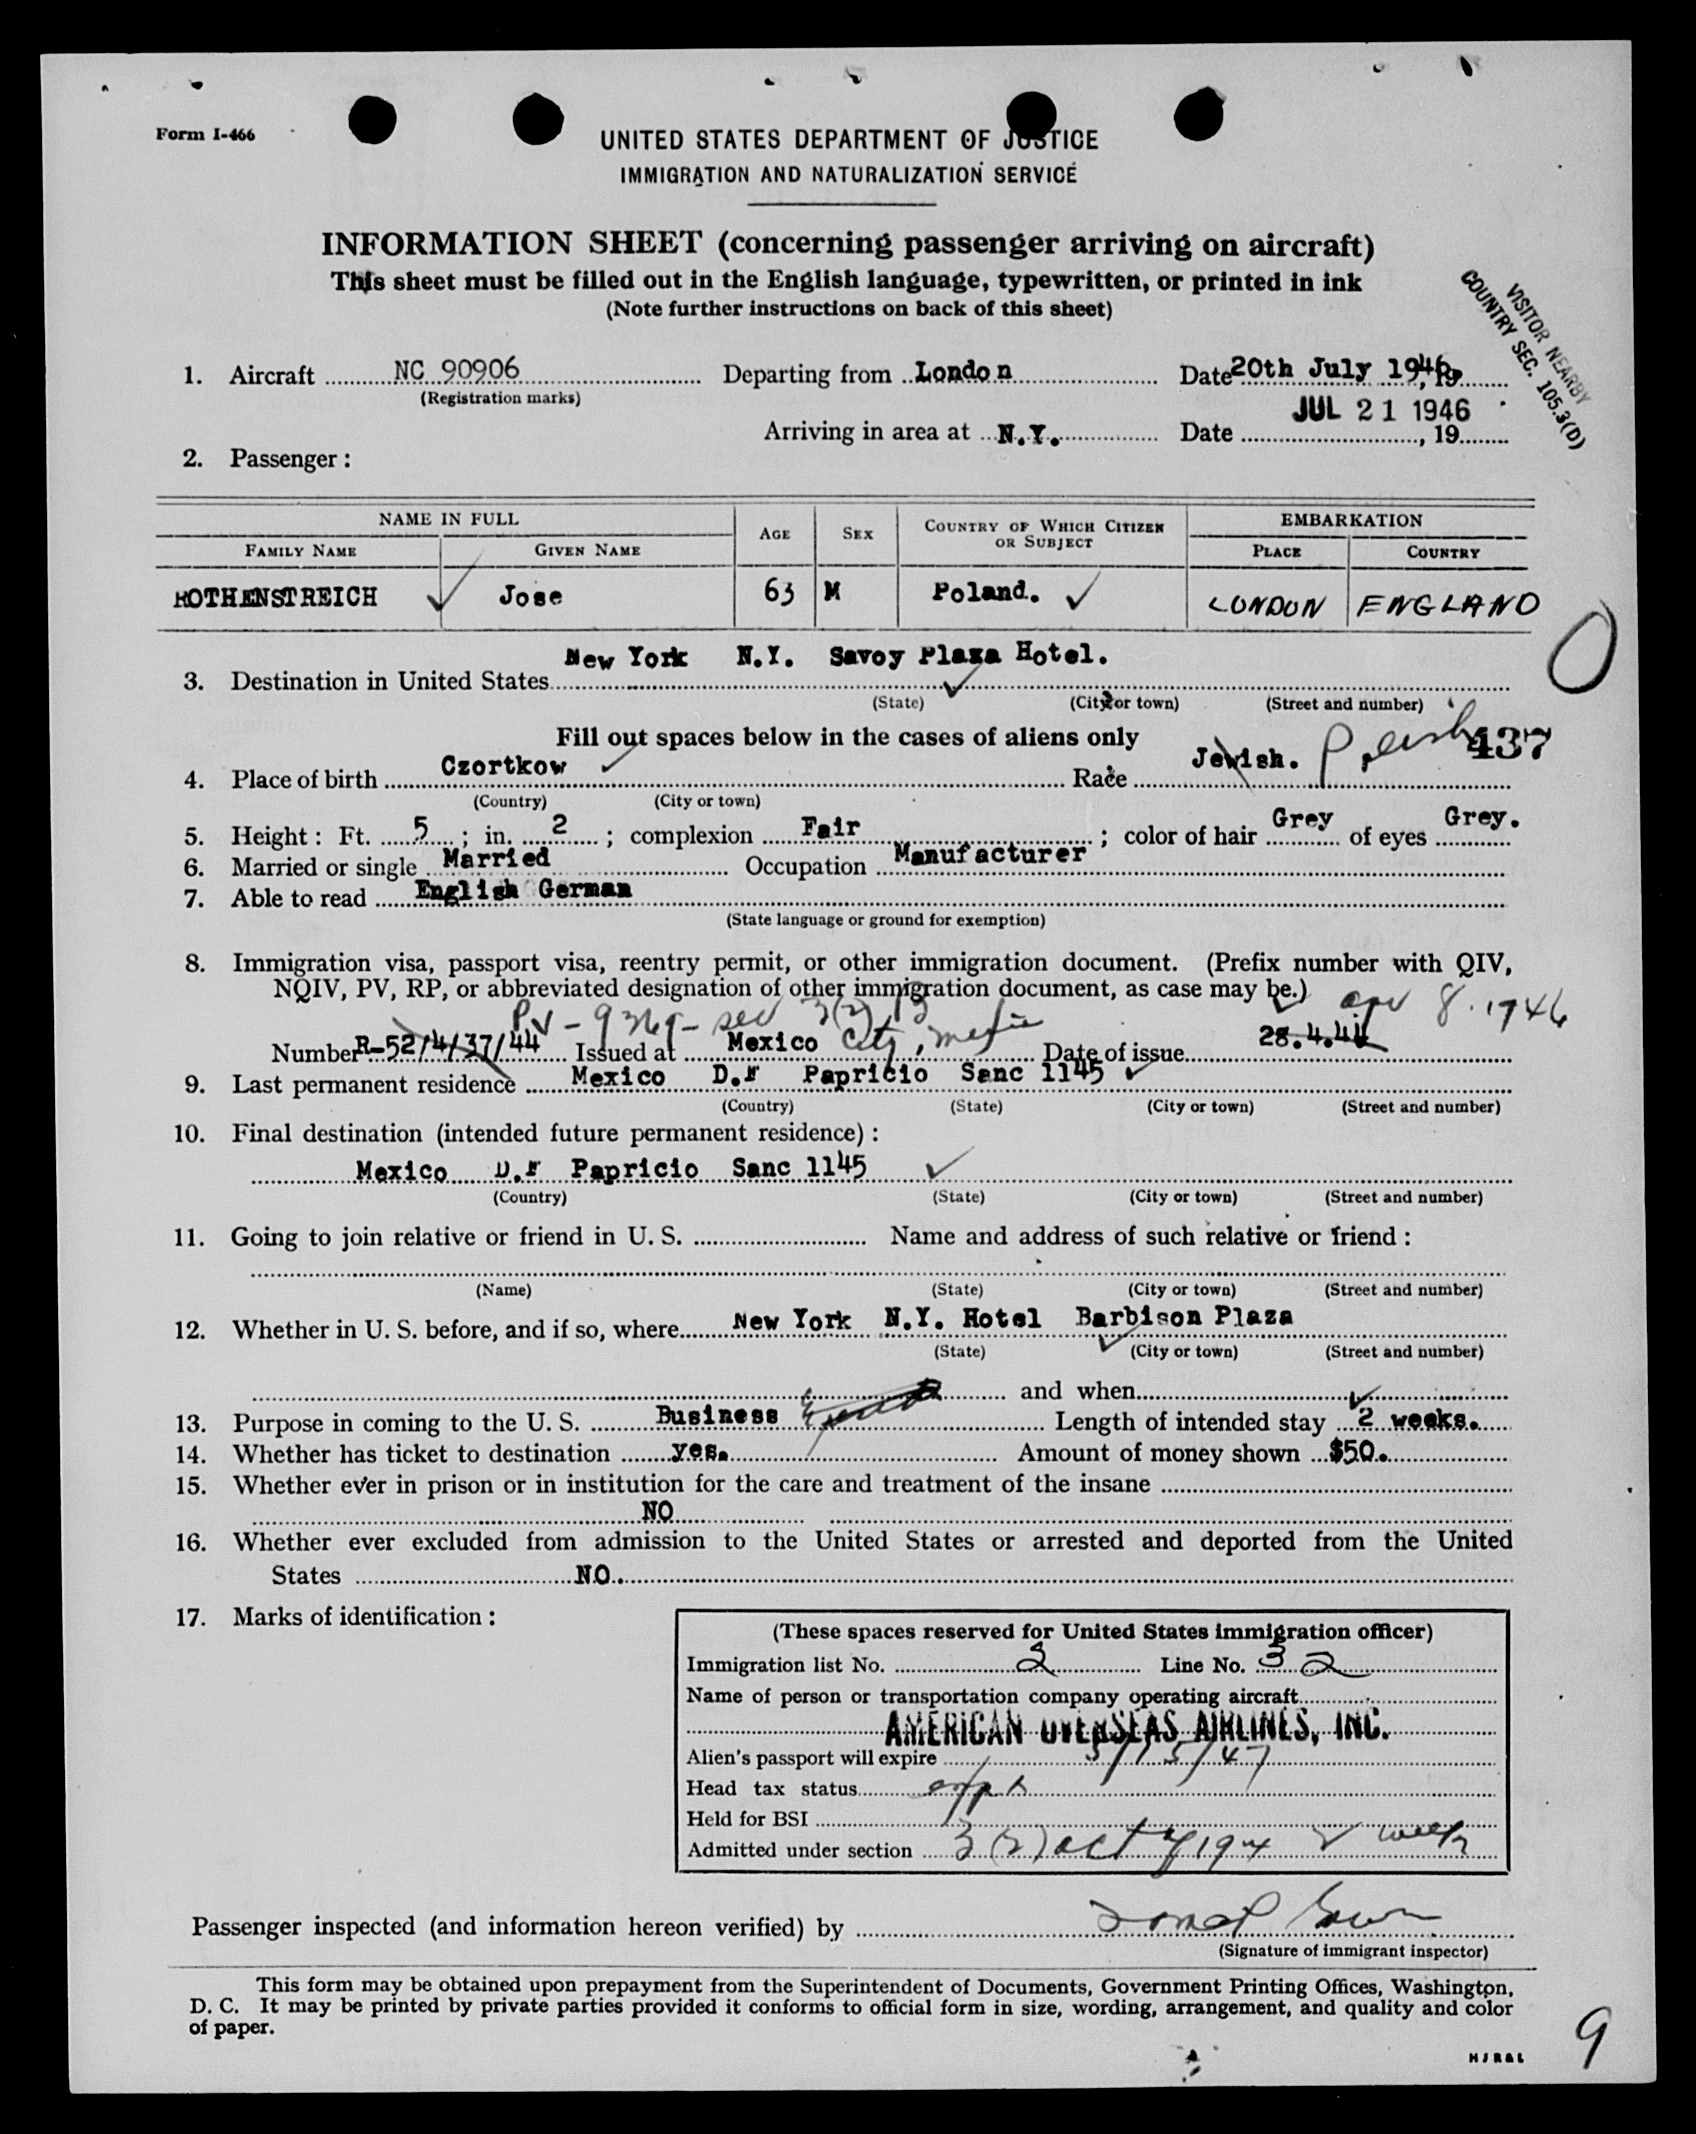 Form I-466
UNITED STATES DEPARTMENT OF JUSTICE
IMMIGRATION AND NATURALIZATION SERVICE
INFORMATION SHEET (concerning passenger arriving on aircraft)
This sheet must be filled out in the English language, typewritten, or printed in ink
(Note further instructions on back of this sheet)
VISITOR NEARBY
COUNTRY SEC. 105.3(D)
1. Aircraft NC 90906 Departing from London Date 20th July 1946, 19
(Registration marks)
JUL 21 1946
Arriving in area at N.Y. Date , 19
2. Passenger :
NAME IN FULL AGE SEX COUNTRY OF WHICH CITIZEN OR SUBJECT EMBARKATION
FAMILY NAME GIVEN NAME PLACE COUNTRY
ROTHENSTREICH Jose 63 M Poland. LONDON ENGLAND
0
New York N.Y. Savoy Plaza Hotel.
3. Destination in United States
(State) (City or town) (Street and number)
Fill out spaces below in the cases of aliens only
437
4. Place of birth Czortkow Race Jewish. Polish
(Country) (City or town)
5. Height : Ft. 5 ; in. 2 ; complexion Fair ; color of hair Grey of eyes Grey.
6. Married or single Married Occupation Manufacturer
7. Able to read English German
(State language or ground for exemption)
8. Immigration visa, passport visa, reentry permit, or other immigration document. (Prefix number with QIV,
NQIV, PV, RP, or abbreviated designation of other immigration document, as case may be.)
PV - sec 3(2) 8. 1946
Number R-52/4/37/44 Issued at Mexico City, Date of issue 28.4.44
9. Last permanent residence Mexico D.F Papricio Sanc 1145
(Country) (State) (City or town) (Street and number)
10. Final destination (intended future permanent residence) :
Mexico D.F Papricio Sanc 1145
(Country) (State) (City or town) (Street and number)
11. Going to join relative or friend in U. S. Name and address of such relative or friend :
(Name) (State) (City or town) (Street and number)
12. Whether in U. S. before, and if so, where New York N.Y. Hotel Barbison Plaza
(State) (City or town) (Street and number)
and when
13. Purpose in coming to the U. S. Business Length of intended stay 2 weeks.
14. Whether has ticket to destination yes. Amount of money shown $50.
15. Whether ever in prison or in institution for the care and treatment of the insane
NO
16. Whether ever excluded from admission to the United States or arrested and deported from the United
States NO.
17. Marks of identification :
(These spaces reserved for United States immigration officer)
Immigration list No. 2 Line No. 32
Name of person or transportation company operating aircraft
AMERICAN OVERSEAS AIRLINES, INC.
Alien's passport will expire 5/15/47
Head tax status
Held for BSI
Admitted under section 3(2) act of 1924 2 weeks
Passenger inspected (and information hereon verified) by
(Signature of immigrant inspector)
This form may be obtained upon prepayment from the Superintendent of Documents, Government Printing Offices, Washington,
D. C. It may be printed by private parties provided it conforms to official form in size, wording, arrangement, and quality and color
of paper.
HJR&L
9